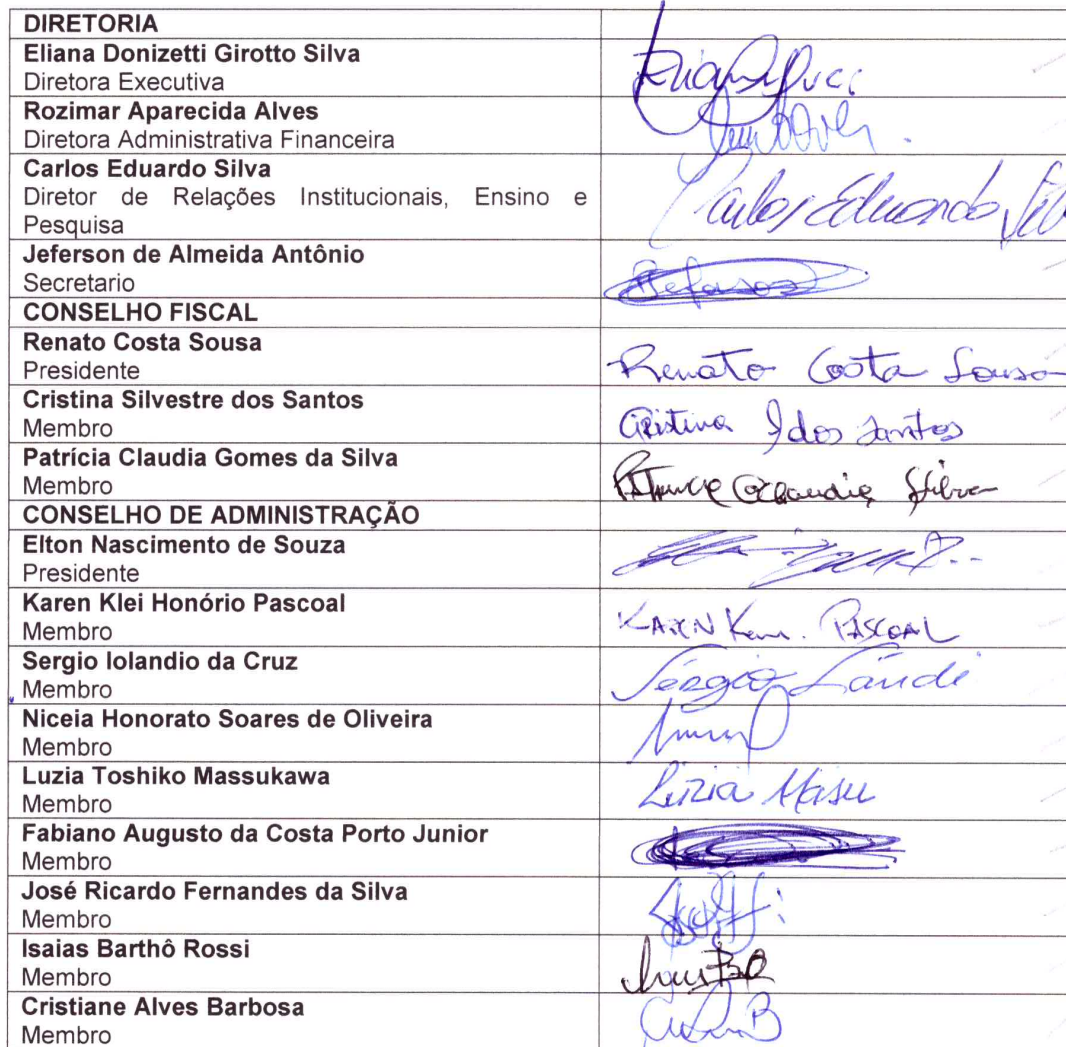 DIRETORIA
Eliana Donizetti Girotto Silva
Diretora Executiva
Rozimar Aparecida Alves
Diretora Administrativa Financeira
Carlos Eduardo Silva
Diretor de Relações Institucionais, Ensino e
Pesquisa
Carlos Eduardo
Jeferson de Almeida Antônio
Secretario
CONSELHO FISCAL
Renato Costa Sousa
Presidente
Renato Costa Sousa
Cristina Silvestre dos Santos
Membro
Cristina S dos Santos
Patrícia Claudia Gomes da Silva
Membro
Claudia Silva
CONSELHO DE ADMINISTRAÇÃO
Elton Nascimento de Souza
Presidente
Karen Klei Honório Pascoal
Membro
KAREN PASCOAL
Sergio Iolandio da Cruz
Membro
Sérgio
Niceia Honorato Soares de Oliveira
Membro
Luzia Toshiko Massukawa
Membro
Luzia Masu
Fabiano Augusto da Costa Porto Junior
Membro
José Ricardo Fernandes da Silva
Membro
Isaias Barthô Rossi
Membro
Cristiane Alves Barbosa
Membro